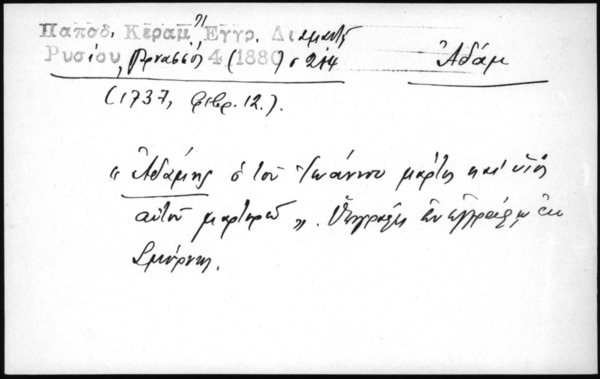 Παποδ. Κεραμ. Ἔγγρ. Διαμαντῆ
Ρυσίου, Παρνασσός 4 (1880) σ 214
Ἀδάμ
(1737, φεβρ. 12.).
« Ἀδάμης ὁ τοῦ Ἰωάννου μάρτυς καί υἱός
αὐτοῦ μαρτυρῶ ». Ὑπογραφή ἐν ἐγγράφῳ ἐκ
Σμύρνης.